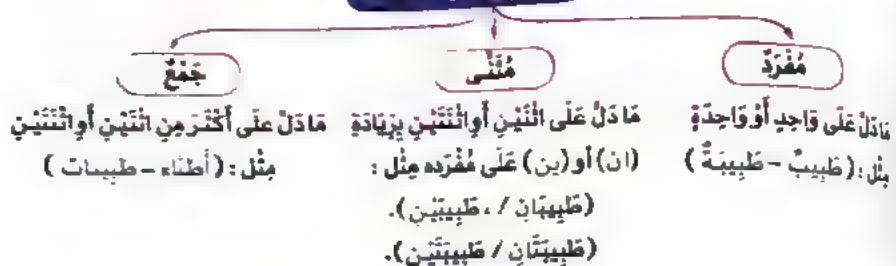 مُفْرَدٌ
مَا دَلَّ عَلَى وَاحِدٍ أَوْ وَاحِدَةٍ
مِثْل: (طَبِيبٌ - طَبِيبَةٌ)
مُثَنًّى
مَا دَلَّ عَلَى اثْنَيْنِ أَوِ اثْنَتَيْنِ بِزِيَادَةِ
(ان) أَو (ين) عَلَى مُفْرَدِهِ مِثْل:
(طَبِيبَانِ / طَبِيبَيْنِ).
(طَبِيبَتَانِ / طَبِيبَتَيْنِ).
جَمْعٌ
مَا دَلَّ عَلَى أَكْثَرَ مِنِ اثْنَيْنِ أَوِ اثْنَتَيْنِ
مِثْل: (أَطِبَّاء - طَبِيبات)